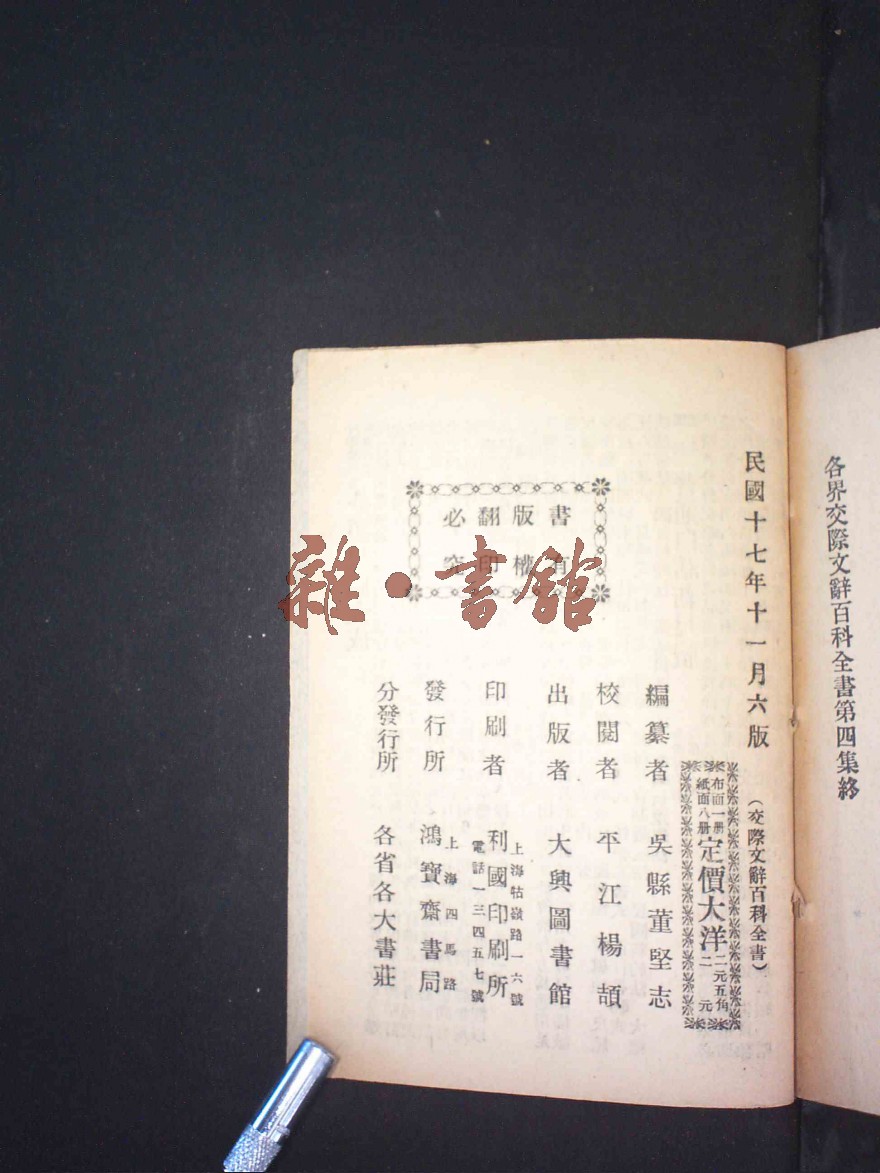 各界交際文辭百科全書第四集終
民國十七年十一月六版
(交際文辭百科全書)
布面一册
紙面八册
定價大洋
二元五角
二元
編纂者 吳縣董堅志
校閱者 平江楊頡
出版者 大興圖書館
印刷者 利國印刷所
上海牯嶺路一六號
電話一三四五七號
發行所 鴻寶齋書局
上海四馬路
分發行所 各省各大書莊
書有
版權
翻印
必究
雜·書館